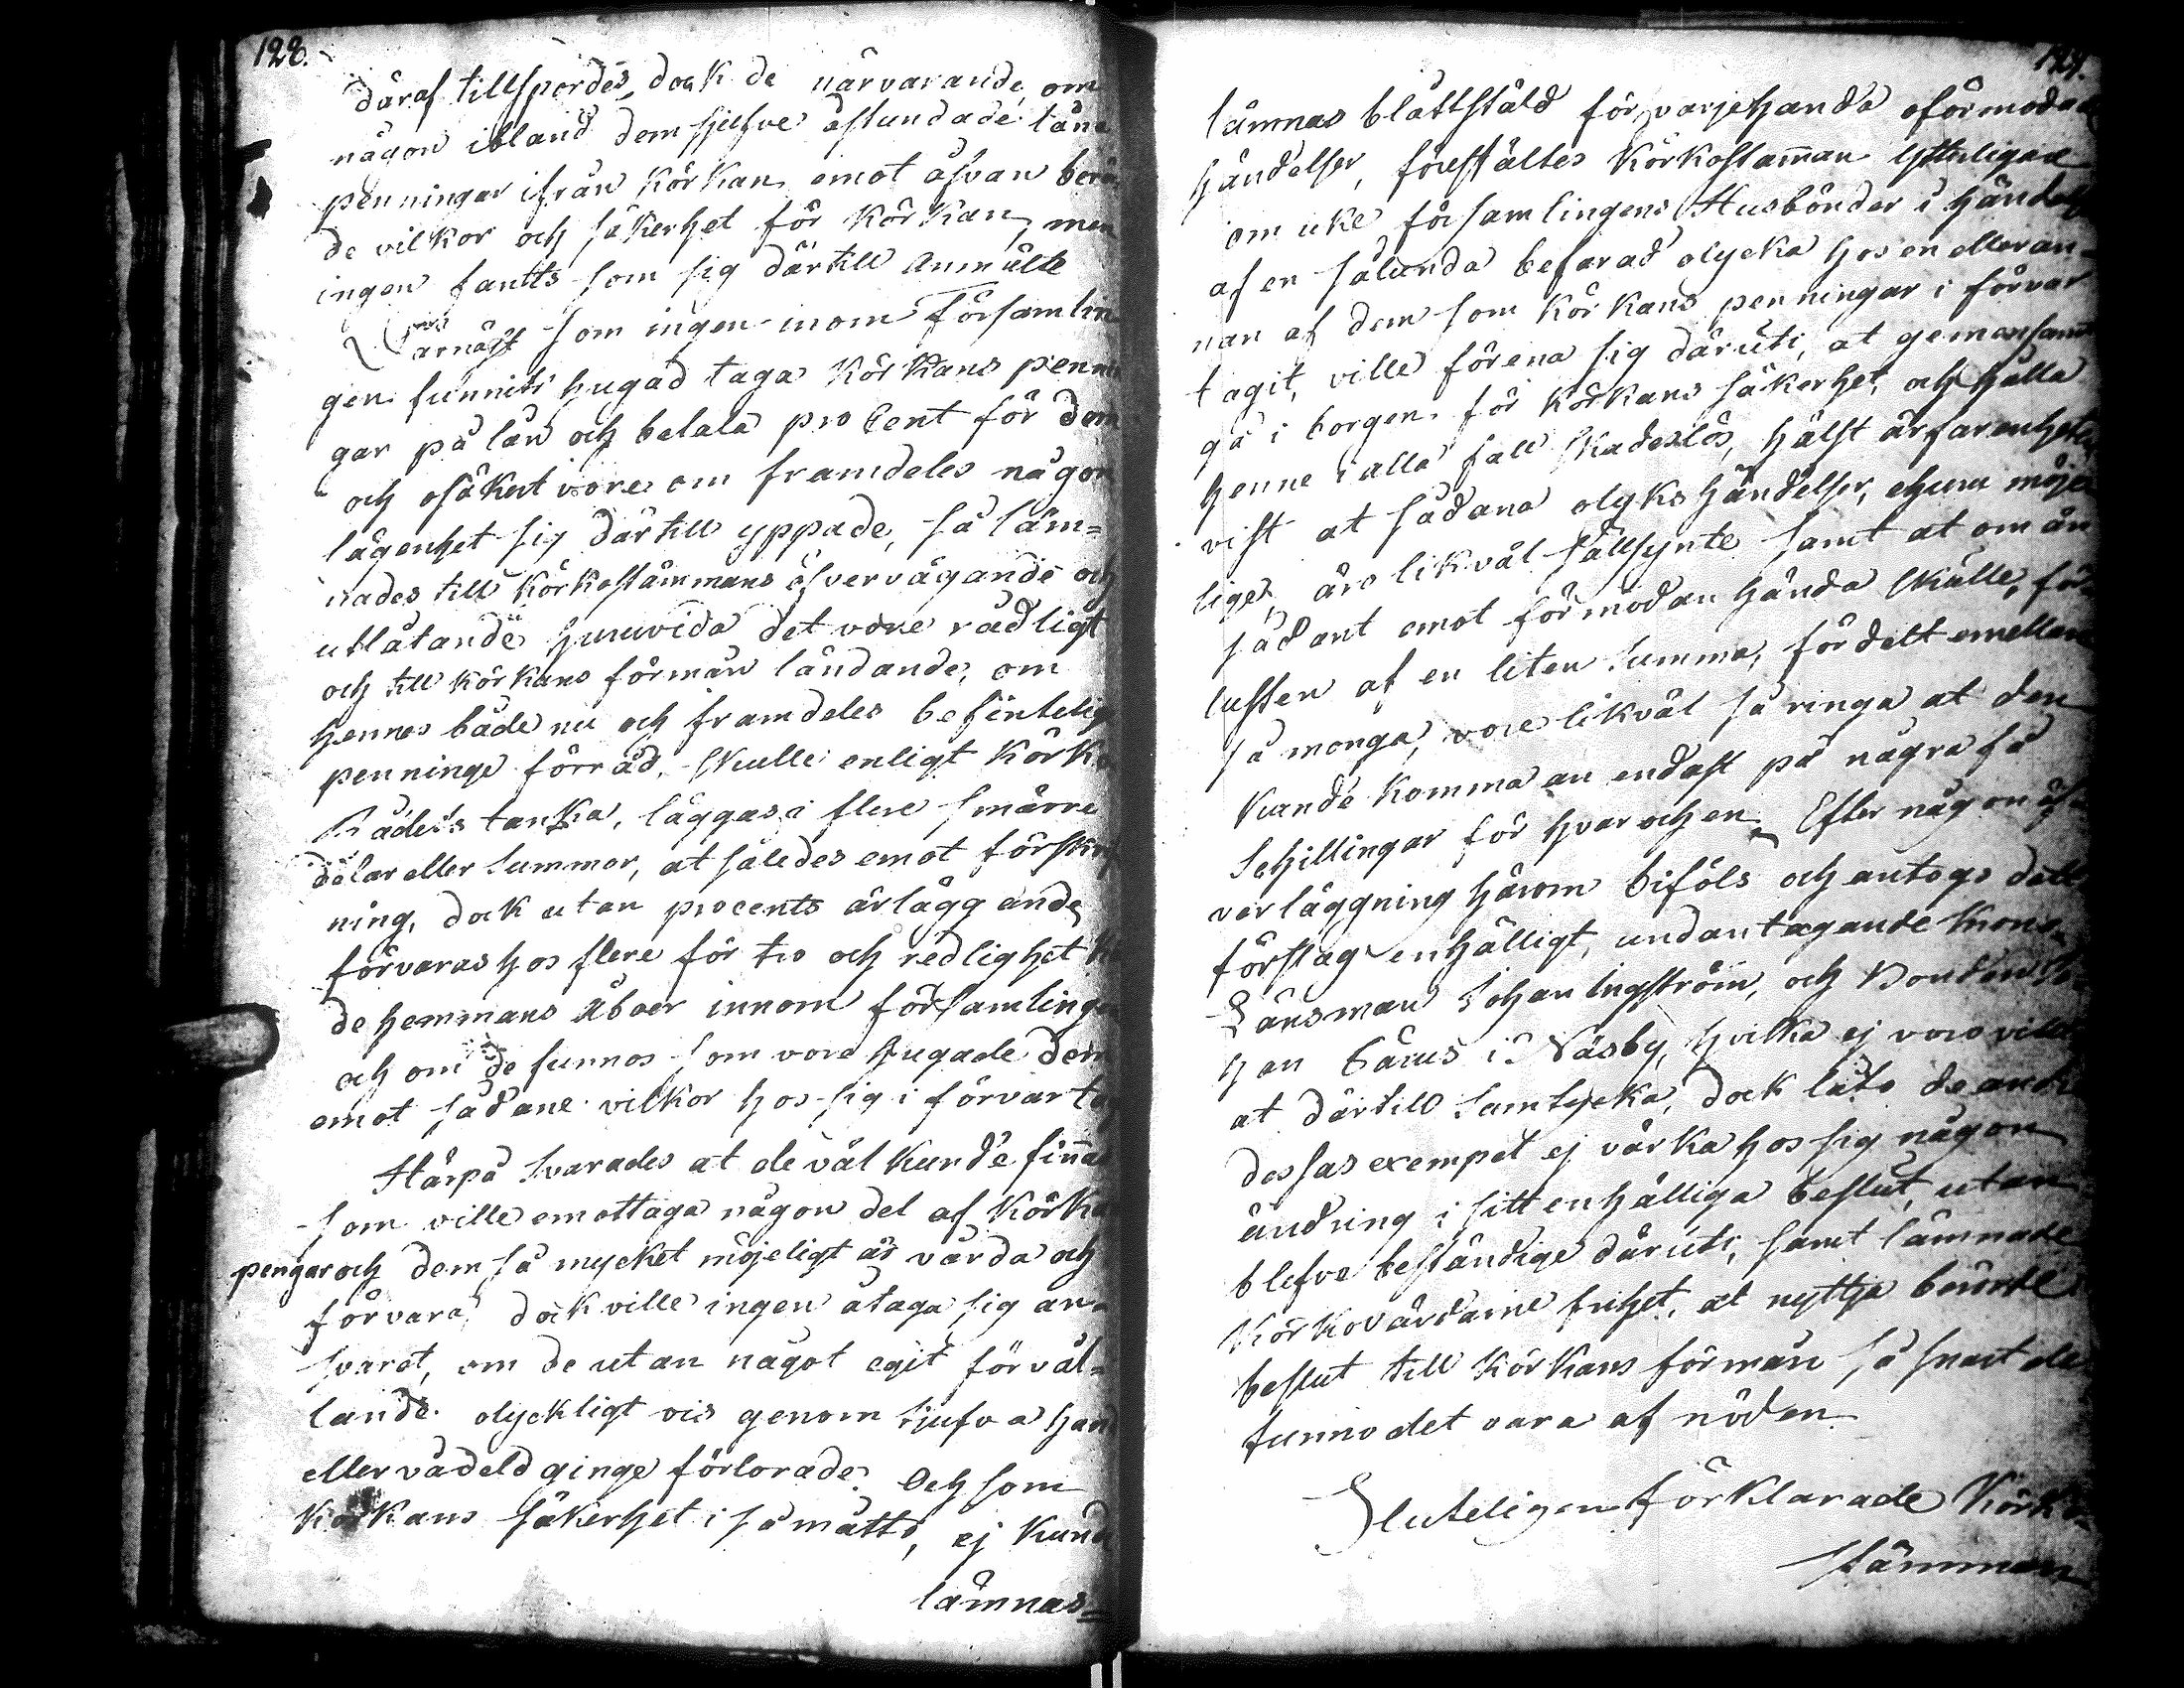 128.
däraf tillspordes, dock de närvarande, om
någon ibland dem sjelfve åstundade låna
penningar ifrån körkan, emot åfvan berör
de vilkor och säkerhet för körkan, men
ingen fantts som sig därtill anmälte
Därnäst som ingen inom Församlin
gen funnits hugad taga körkans pennin
gar på lån och betala pro Cent för dem
och osäkert vore om framdeles någon
lägenhet sig därtill yppade, så läm=
nades till körkostämmans öfvervägande och
utlåtande huruvida det vore rådligt
och till körkans förmån ländande, om
hennes både nu och framdeles befintelig
penninge förråd, skulle enligt körko
Rådets tanka, läggas i flere smärre
delar eller Summor, at således emot förskrif
ning, dock utan procents ärläggande
förvaras hos flere för tro och redlighet
de hemmans Åboer innom församlingen
och om de funnos som vore hugade dem
emot sådane vilkor hos sig i förvar ta
Härpå Svarades at de väl kunde finnas
som ville emottaga någon del af körko
pengar och dem så mycket möjeligt är vårda och
förvara, dock ville ingen åtaga sig an-
svaret, om de utan något egit förvål=
lande olyckligt vis genom tjufva hand
eller vådeld ginge förlorade. Och som
körkans säkerhet i så måtto, ej kund
lämnas=
129.
lämnas blåttstäld för varjehanda oförmodad
händelser, föreställtes körkostämman ytterligare
om icke församlingens Husbönder i händelse
af en sålunda befarad olycka hos en eller an-
nan af dem som körkans penningar i förvar
tagit, ville förena sig däruti, at gemensamt
gå i borgen för körkans säkerhet, och hålla
henne i alla fall skadeslös, hälst ärfarenheten
vist at sådana olyks händelser, ehuru möje
lige, äro likväl sällsynte samt at om än
sådant emot förmodan hända skulle, för
lusten af en liten Summa, fördelt emellan
så monga, vore likväl så ringa at den
kunde komma an endast på några få
Schillingar för hvar och en. Efter någon öf
verläggning härom biföls och antogs dett
förslag enhälligt, undantagande Krono
Länsman Johan Engström, och Bonden
han Lärus i Näsby, hvilka ej voro ville
at därtill Samtycka, dock läto de andr
dessas exempel ej värka hos sig någon
ändring i sitt enhälliga beslut, utan
blefvo beständige däruti, samt lämnade
körkovärdarne frihet, at nyttja berörde
beslut till körkans förmån så snart de
funno det vara af nöden
Sluteligen förklarade Körko
stämman